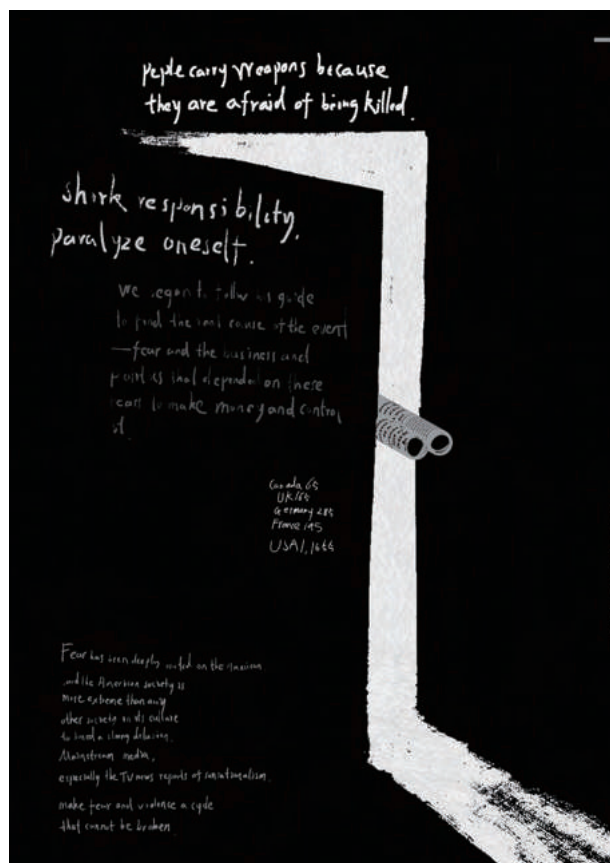 peple carry weapons because
they are afraid of being killed.
shirk responsibility,
paralyze oneself.
we began to follow his guide
to find the real cause of the event
—fear and the business and
that depended on these
to make money and control
Canada 65
UK 165
Germany 285
France 195
USA
Fear has been deeply rooted on the American
and the American society is
more extreme than any
other society on its culture
to breed a strong
Mainstream media,
especially the TV news reports of sensationalism.
make fear and violence a cycle
that cannot be broken